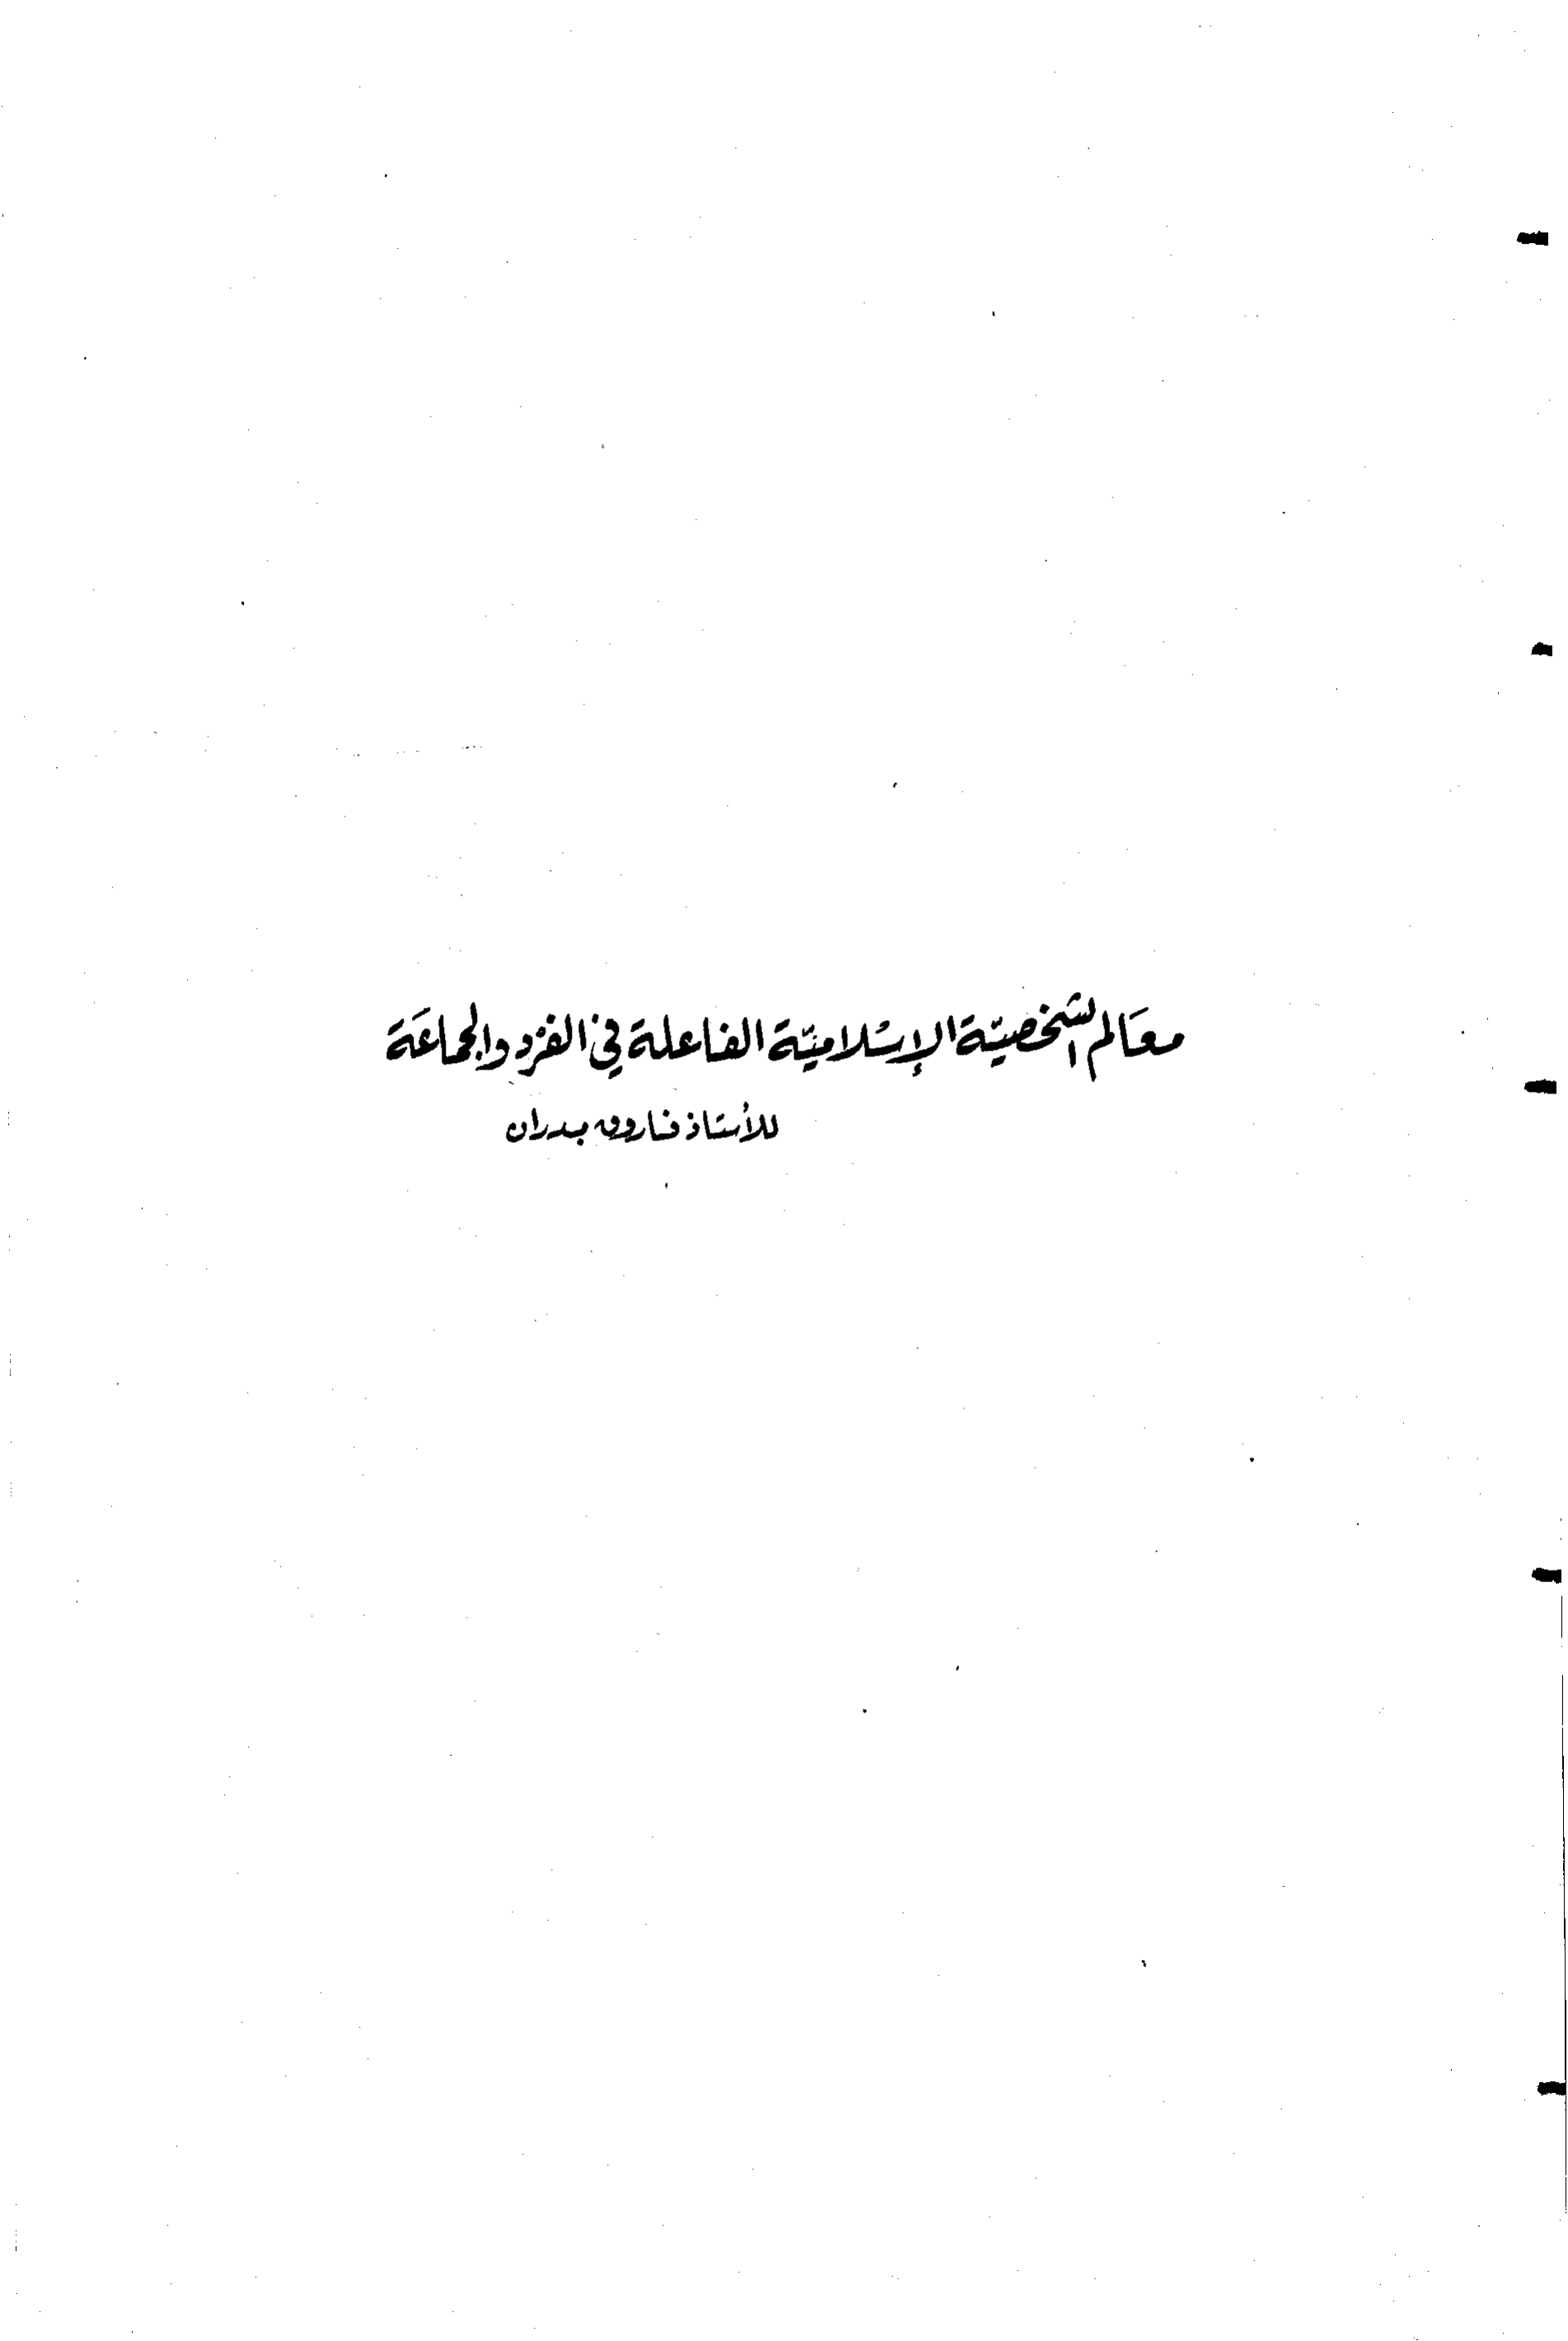 معَالم الشخصيّة الإسْلاميّة الفاعلة في الفرْد والجماعَة
للأستاذ فاروق بدران